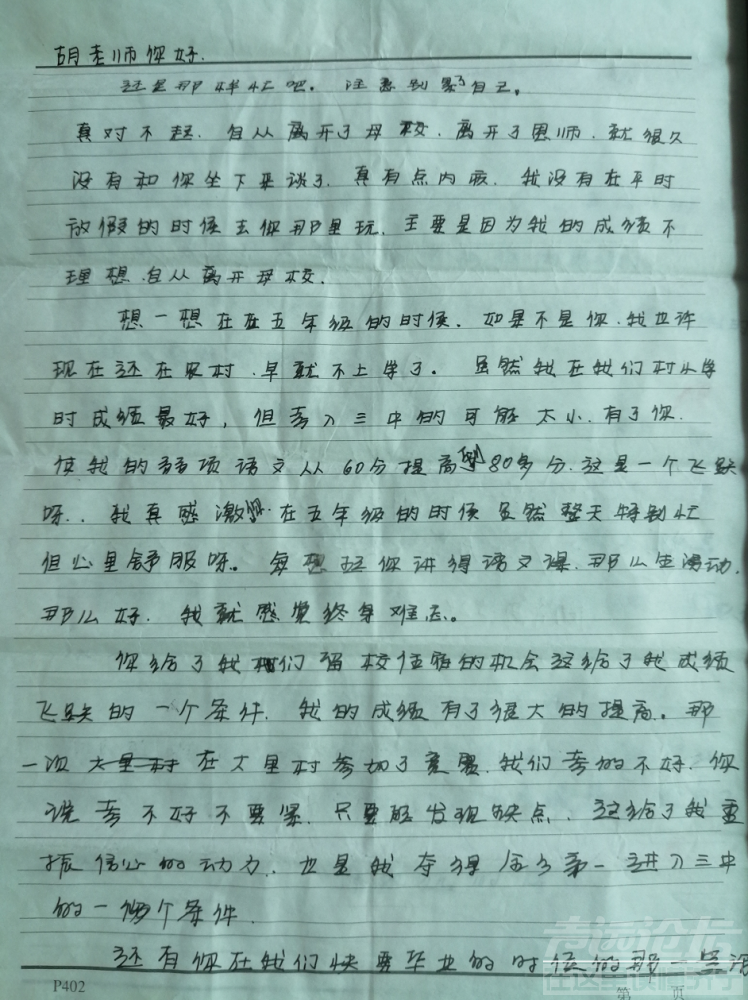 胡老师你好.
还是那样忙吧。注意别累了自己。
真对不起.自从离开了母校.离开了恩师.就很久
没有和你坐下来谈了.真有点内疚.我没有在平时
放假的时候去你那里玩.主要是因为我的成绩不
理想.自从离开母校.
想一想在在五年级的时候.如果不是你.我也许
现在还在农村.早就不上学了。虽然我在我们村小学
时成绩最好,但考入三中的可能太小.有了你.
使我的弱项语文从60分提高到80多分.这是一个飞跃
呀..我真感激你.在五年级的时候虽然整天特别忙
但心里舒服呀。每想起你讲得语文课.那么生漫动.
那么好.我就感觉终身难忘。
你给了我们留校住宿的机会这给了我成绩
飞跃的一个条件.我的成绩有了很大的提高。那
一次大里村在大里村参加了竞赛.我们考的不好.你
说考不好不要紧.只要能发现缺点.这给了我重
振信心的动力.也是我夺得全乡第一进入三中
的一个条件.
还有你在我们快要毕业的时候的那一堂
P402
第 页
老运论坛